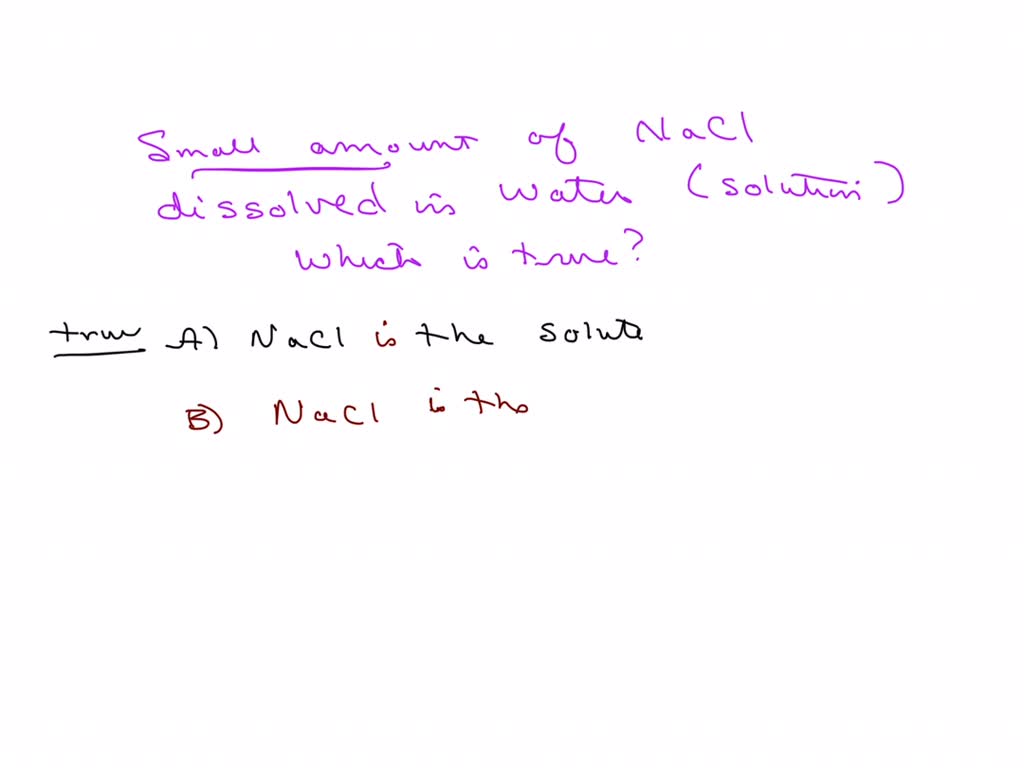 Small amount of NaCl
dissolved in water (solution)
which is true?
true A) NaCl is the solute
B) NaCl is the